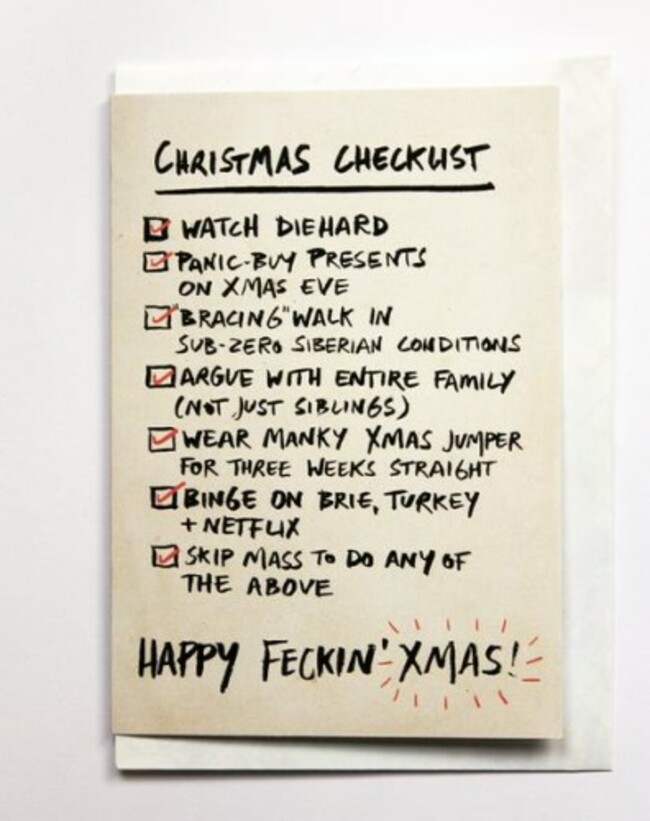 CHRISTMAS CHECKLIST
WATCH DIEHARD
PANIC-BUY PRESENTS
ON XMAS EVE
"BRACING" WALK IN
SUB-ZERO SIBERIAN CONDITIONS
ARGUE WITH ENTIRE FAMILY
(NOT JUST SIBLINGS)
WEAR MANKY XMAS JUMPER
FOR THREE WEEKS STRAIGHT
BINGE ON BRIE, TURKEY
+ NETFLIX
SKIP MASS TO DO ANY OF
THE ABOVE
HAPPY FECKIN' XMAS!